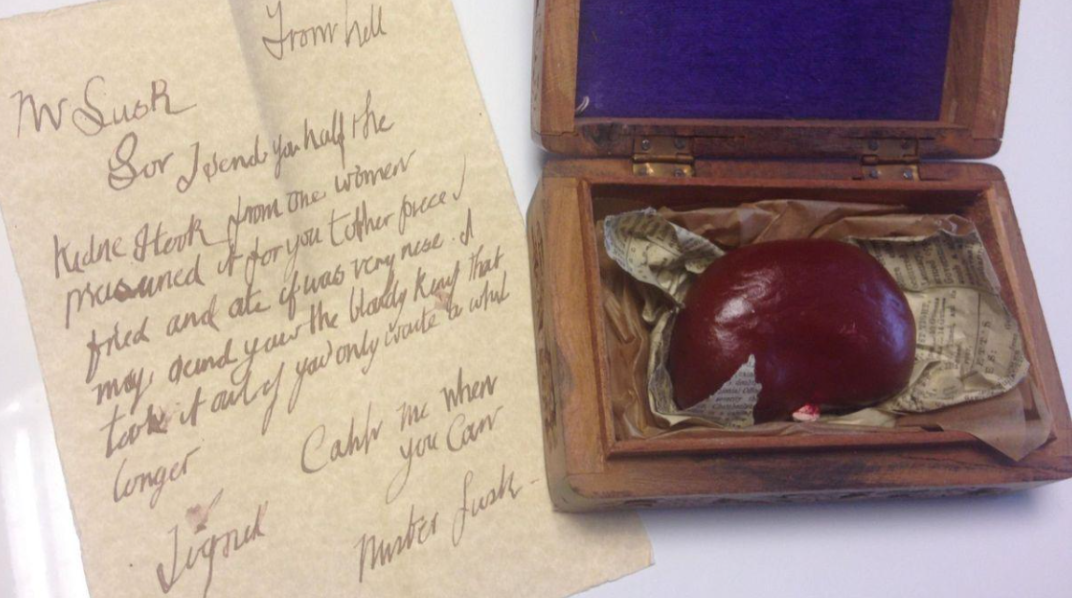 From hell
Mr Lusk
Sor I send you half the
Kidne I took from one women
prasarved it for you tother piece I
fried and ate it was very nise. I
may send you the bloody knif that
took it out if you only wate a whil
longer
Catch me when
you Can
Signed
Mister Lusk